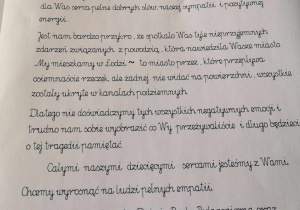 dla Was serca pełne dobrych słów, naszej sympatii i pozytywnej
energii.
Jest nam bardzo przykro, że spotkało Was tyle nieprzyjemnych
zdarzeń związanych z powodzią, która nawiedziła Wasze miasto.
My mieszkamy w Łodzi ~ to miasto przez, które przepływa
osiemnaście rzeczek, ale żadnej nie widać na powierzchni, wszystkie
zostały ukryte w kanałach podziemnych.
Dlatego nie doświadczymy tych wszystkich negatywnych emocji i
trudno nam sobie wyobrazić co Wy przeżywaliście i długo będziecie
o tej tragedii pamiętać.
Całymi naszymi dziecięcymi sercami jesteśmy z Wami.
Chcemy wyrosnąć na ludzi pełnych empatii.